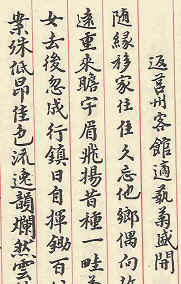 返莒州客館適藝菊盛開
随緣移家住住久忘他鄉偶向
遠重来瞻宇眉飛揚昔種一畦
女去後忽成行鎮日自揮鋤百
案殊低昂佳色流逸韻爛然雲